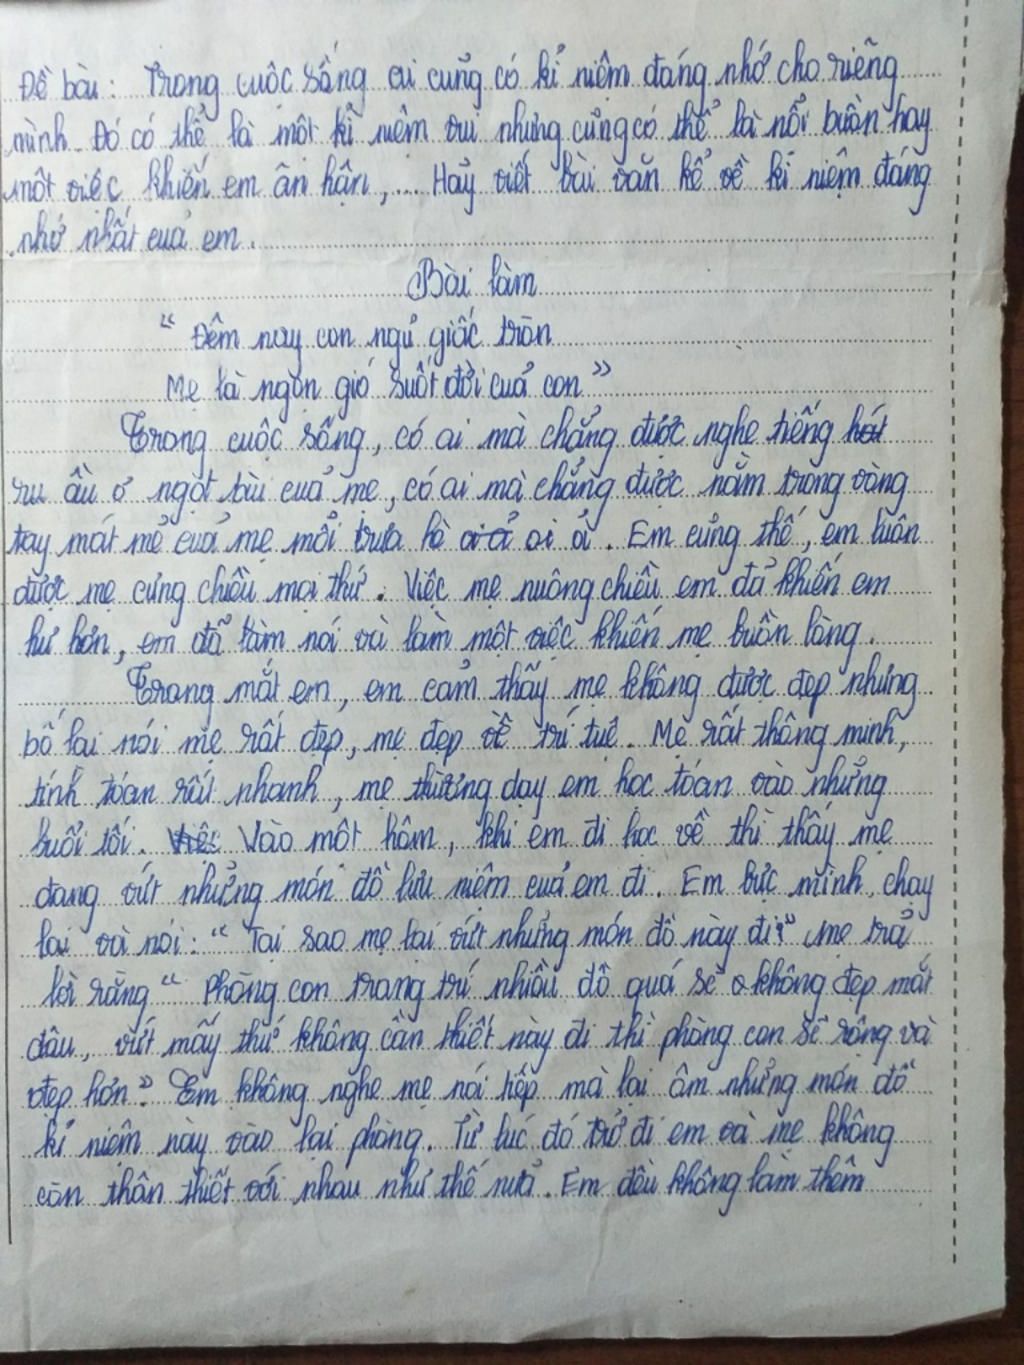 Đề bài: Trong cuộc sống ai cũng có kỉ niệm đáng nhớ cho riêng
mình. Đó có thể là một kỉ niệm vui nhưng cũng có thể là nỗi buồn hay
một việc khiến em ân hận,... Hãy viết bài văn kể về kỉ niệm đáng
nhớ nhất của em.
Bài làm
“Đêm nay con ngủ giấc tròn
Mẹ là ngọn gió suốt đời của con”
Trong cuộc sống, có ai mà chẳng được nghe tiếng hát
ru ầu ơ ngọt bùi của mẹ, có ai mà chẳng được nằm trong vòng
tay mát mẻ của mẹ mỗi trưa hè oi ả oi ả. Em cũng thế, em luôn
được mẹ cưng chiều mọi thứ. Việc mẹ nuông chiều em đã khiến em
hư hơn, em đã làm nói và làm một việc khiến mẹ buồn lòng.
Trong mắt em, em cảm thấy mẹ không được đẹp nhưng
bố lại nói mẹ rất đẹp, mẹ đẹp về trí tuệ. Mẹ rất thông minh,
tính toán rất nhanh, mẹ thường dạy em học toán vào những
buổi tối. Việc Vào một hôm, khi em đi học về thì thấy mẹ
đang vứt những món đồ lưu niệm của em đi. Em bực mình, chạy
lại và nói: “Tại sao mẹ lại vứt những món đồ này đi?” mẹ trả
lời rằng “Phòng con trang trí nhiều đồ quá sẽ không đẹp mắt
đâu, vứt mấy thứ không cần thiết này đi thì phòng con sẽ rộng và
đẹp hơn”. Em không nghe mẹ nói tiếp mà lại ôm những món đồ
kỉ niệm này vào lại phòng. Từ lúc đó trở đi em và mẹ không
còn thân thiết với nhau như thế nữa. Em đều không làm thêm